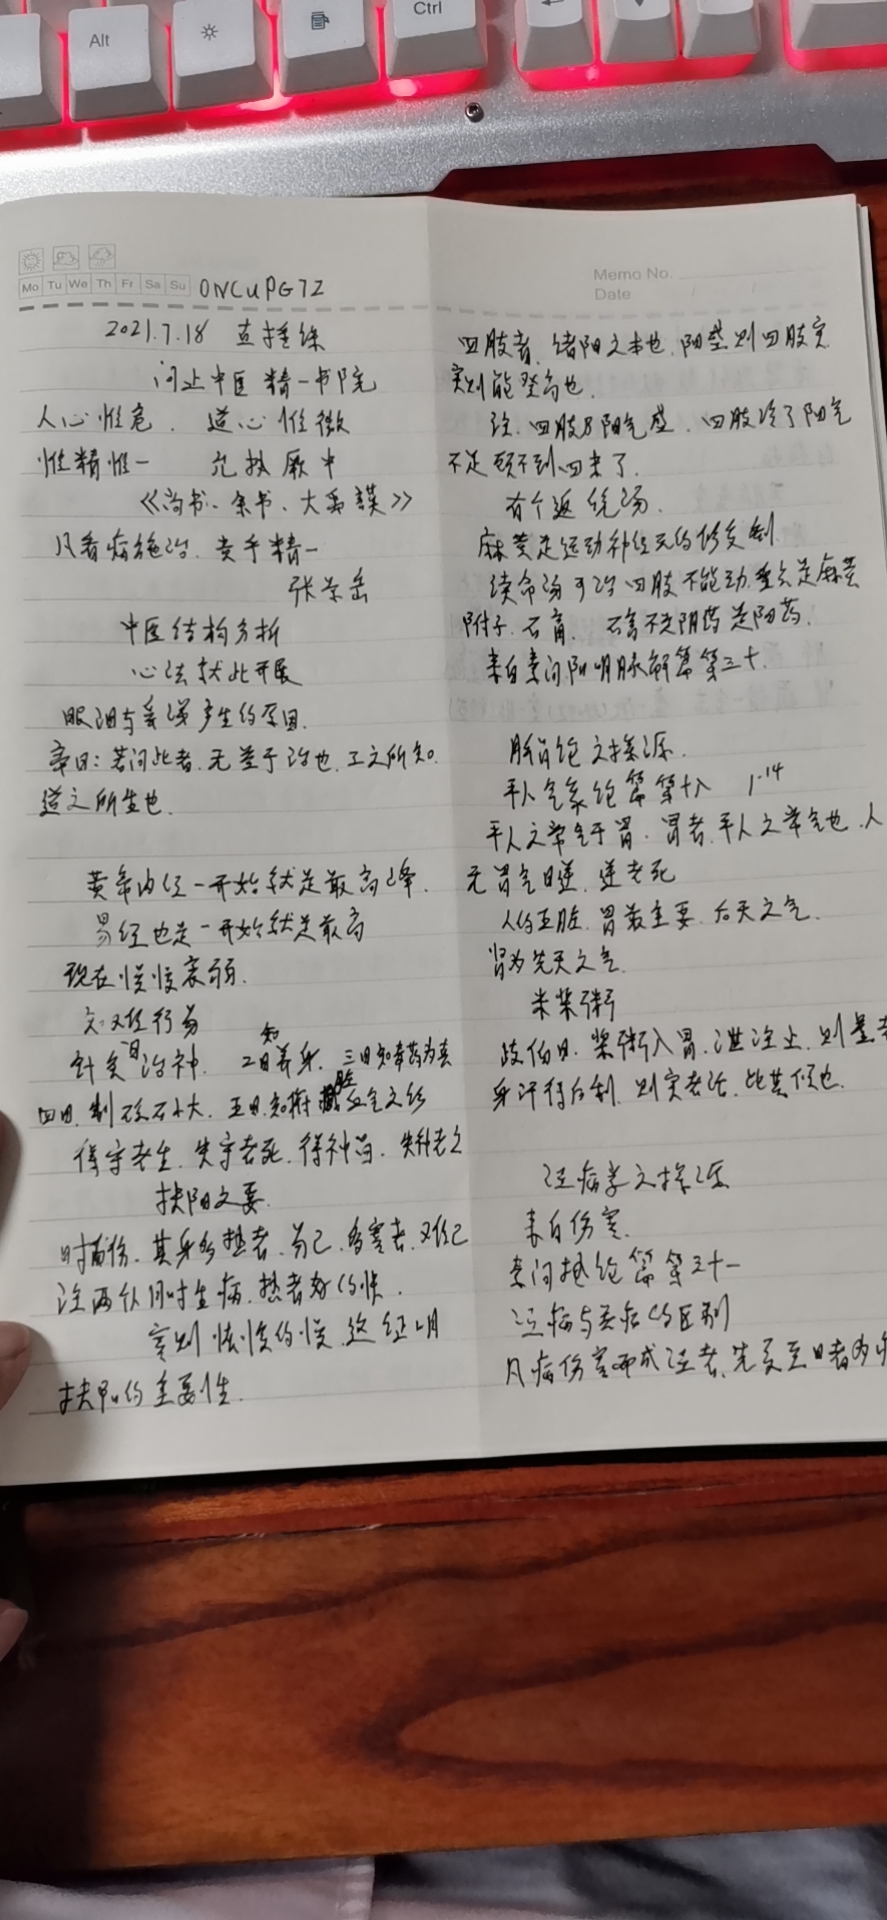 Alt
Ctrl
Mo Tu We Th Fr Sa Su ONCUPGTZ
2021.7.18 直接
问止中医 精一书院
人心惟危、道心惟微
惟精惟一 允执厥中
《尚书、余书、大禹謨》
凡看病施治、贵乎精一
张景岳
中医结构分析
心法就此开展
眼泪与鼻涕产生的原因.
帝曰：若问此者、无益于治也、工之所知.
道之所生也.
黄帝内经一开始就是最高峰.
易经也是一开始就是最高
现在慢慢衰弱.
文难行易
针灸曰治神、二曰知养身、三曰知毒药为真
四曰、制砭石小大、五曰、知腑脏血气之
得守者生、失守者死、得神者、失神者亡
扶阳之要.
时而伤、其身多热者、易已、多寒者、难已
注 两个人同时生病、热者好的快.
寒则 的慢、这证明
扶阳的重要性.
Memo No.
Date
四肢者、诸阳之本也、阳盛则四肢实
实则能登高也.
注、四肢为阳气盛、四肢冷了阳气
不足 回来了.
有个返 汤.
麻黄是运动神经元的修复剂
续命汤可治四肢不能动、重点是麻黄
附子、石膏、石膏不是阴药是阳药.
来自素问阳明脉解篇第三十.
肺胃 之探源.
平人气象论篇第十八 1.14
平人之常气于胃、胃者、平人之常气也、人
无胃气曰逆、逆者死
人的五脏、胃最主要、后天之气.
肾为先天之气
米浆粥
歧伯曰、浆粥入胃、泄注止、则虚者
身汗得后利、则实者活、此其候也.
温病学之探源
来自伤寒.
素问热论篇第三十一
温病与 病的区别
凡病伤寒而成温者、先夏至日者为